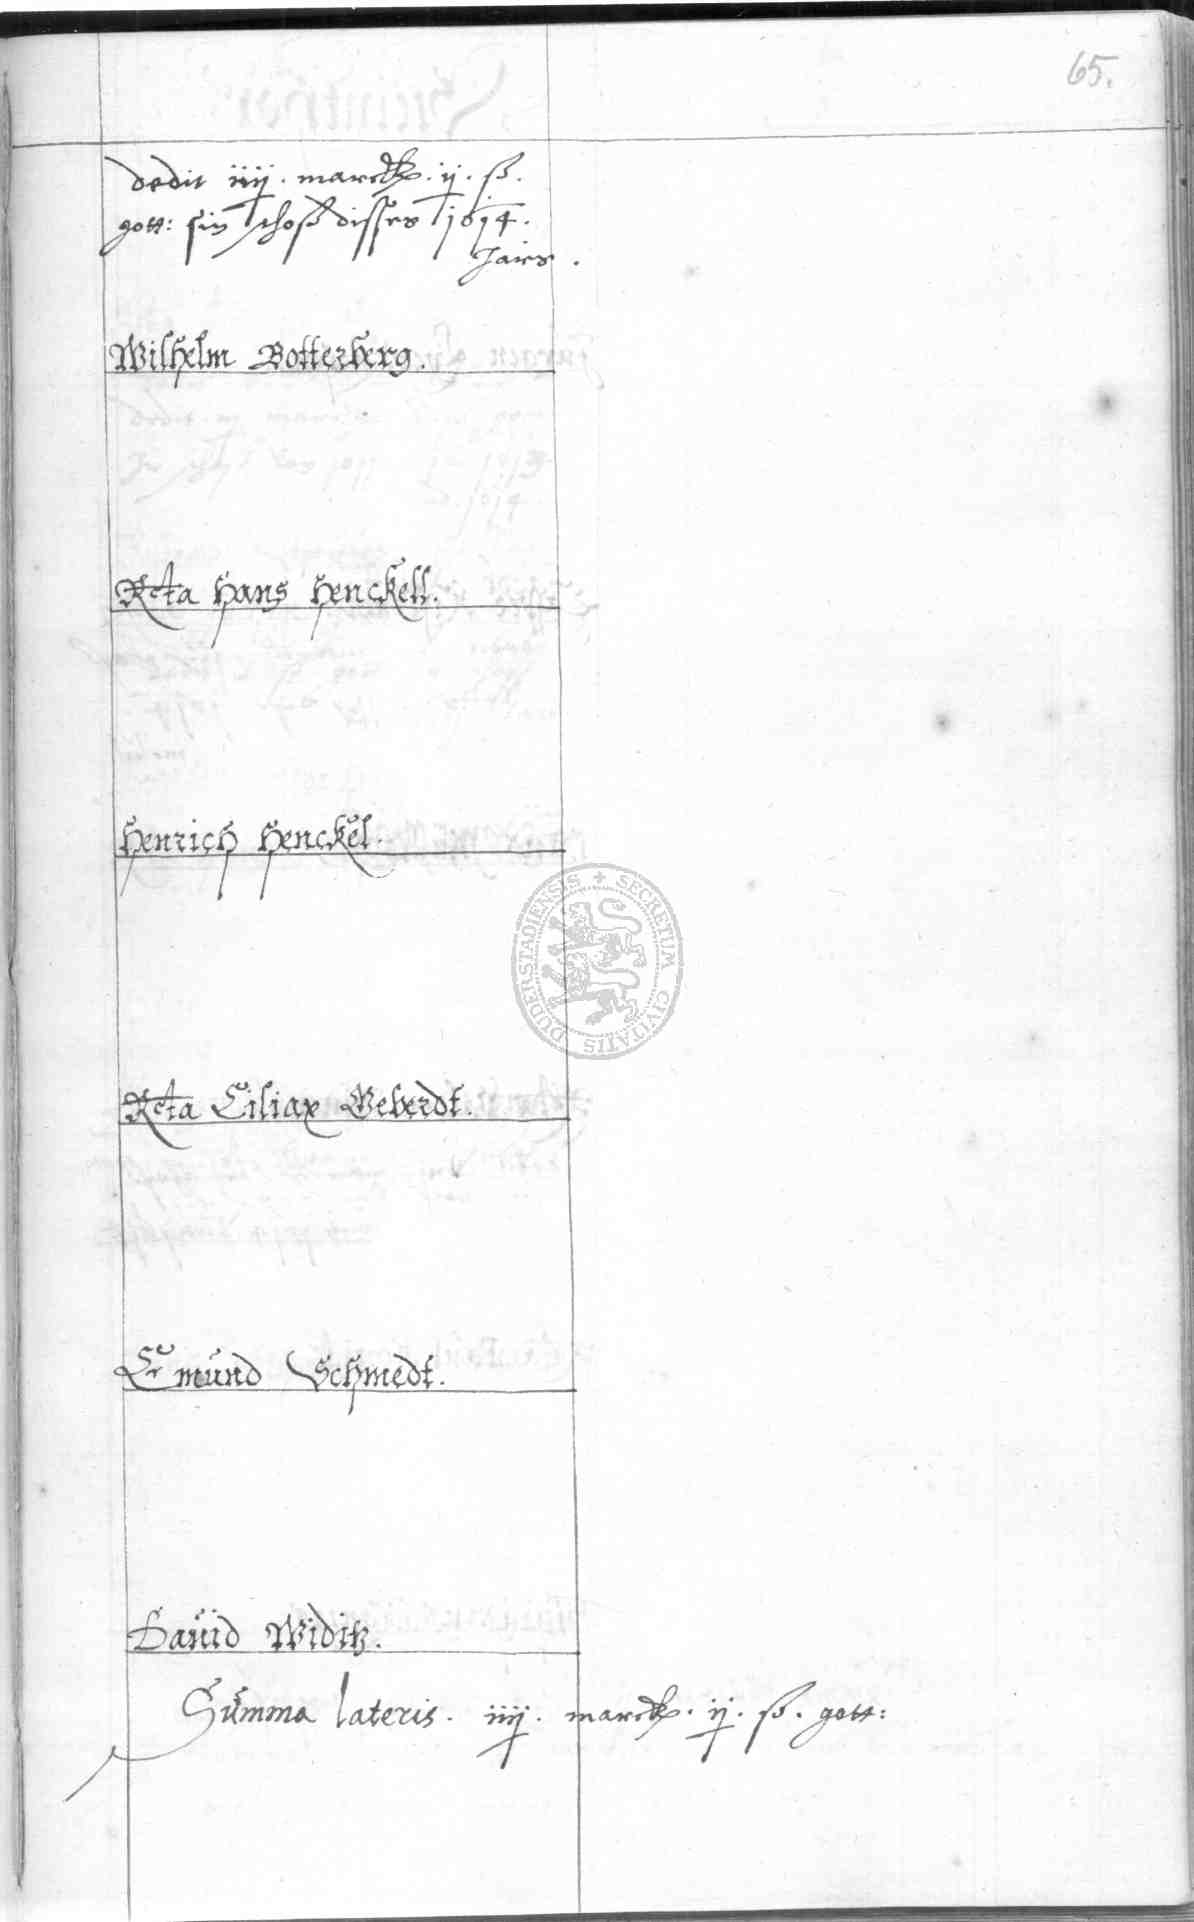 65.
dedit iiij. marck. ij. ß.
gott: sin schoß disses 1614.
Jairs.
Wilhelm Botterberg.
Relicta Hans Henckell.
Henrich Henckel.
Relicta Ciliax Geberdt.
Emund Schmedt.
Dauid Widitz.
Summa lateris. iiij. marck. ij. ß. gott:
DUDERSTADIENSIS + SECRETUM CIVITATIS